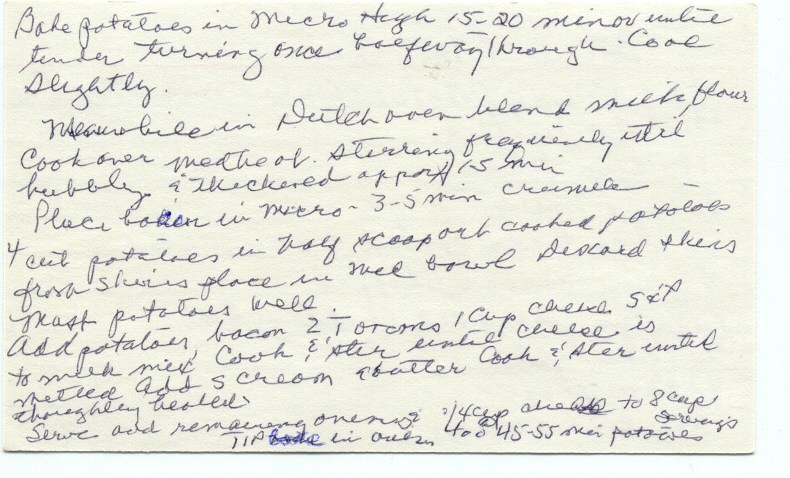 Bake potatoes in Micro High 15-20 min or until
tender turning once halfway through. Cool
slightly.
Meanwhile in Dutch oven blend milk, flour
Cook over med heat. Stirring frequently until
bubbly & thickened approx 15 min
Place bacon in Micro - 3-5 min
4 cut potatoes in half scoop out cooked potatoes
from skins place in med bowl Discard skins
Mash potatoes well.
Add potatoes, bacon 2 T onions 1 cup cheese S & P
to milk mix Cook & ster until cheese is
melted Add S cream & butter Cook & ster until
thoughley heated.
Serve add remaining onions & 1/4 cup cheese to 8 cup
servings
TIP bake in oven 400 @ 45-55 min potatoes